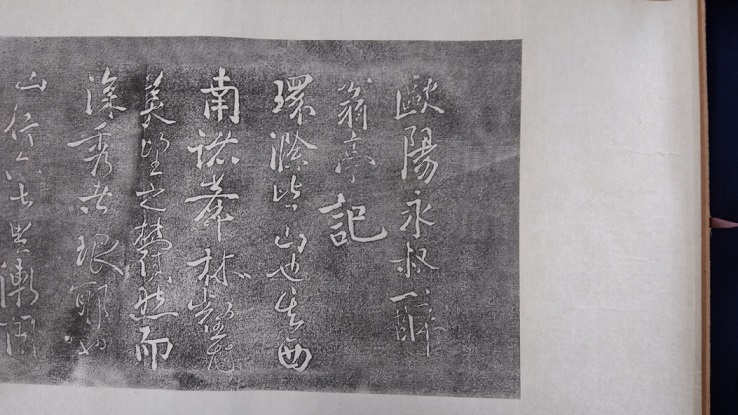 歐陽永叔醉
翁亭記
環滁皆山也其西
南諸峯林壑尤
美望之蔚然而
深秀者琅琊也
山行六七里漸聞